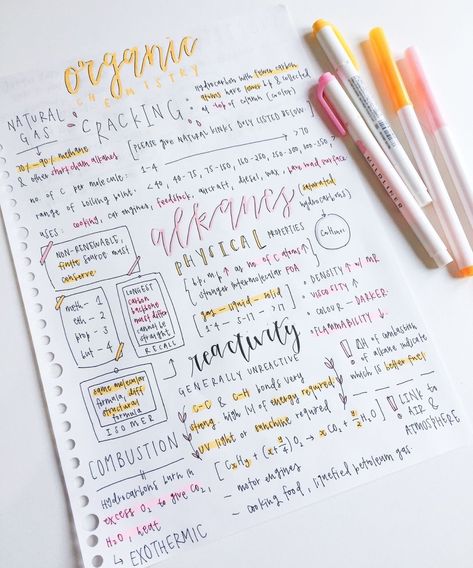 organic
CHEMISTRY
NATURAL GAS
70% - 90% methane
& other short chain alkanes
CRACKING:
hydrocarbon with fewer carbon
atoms have lower b.p & collected
at of column (cooler)
[PLEASE GIVE NATURAL HINKS ONLY LISTED BELOW:]
no. of C per molecule: 1-4 → >70
range of boiling point: <40, 40-75, 75-150, 150-
USES: cooking, car engines, feedstock, aircraft, diesel, wax, road surface
alkanes
(saturated
hydrocarbons)
NON-RENEWABLE,
finite source must
conserve
PHYSICAL PROPERTIES
[b.p, m.p ↑ as no. of C atoms ↑
stronger intermolecular FOA
gas - liquid - solid
1-4 5-17 >17]
meth - 1
eth - 2
prop - 3
but - 4
LONGEST
carbon
backbone
must differ
cannot be
straight
RECALL
• DENSITY ↑ w MR
• VISCOSITY ↑
• COLOUR - DARKER
• FLAMMABILITY ↓
reactivity
GENERALLY UNREACTIVE
C-C & C-H bonds very
strong. high lvl of energy required
UV light or sunshine required
ΔH of combustion
of alkane indicate
which is better fuel
same molecular
formula, diff
structural
formula
ISOMER
[CxHy + (x+y/4)O₂ → xCO₂ + y/2 H₂O]
! LINK to
AIR &
ATMOSPHERE
COMBUSTION
Hydrocarbons burn in
excess O₂ to give CO₂,
H₂O, heat
↳ EXOTHERMIC
- motor engines
- cooking food, liquefied petroleum gas